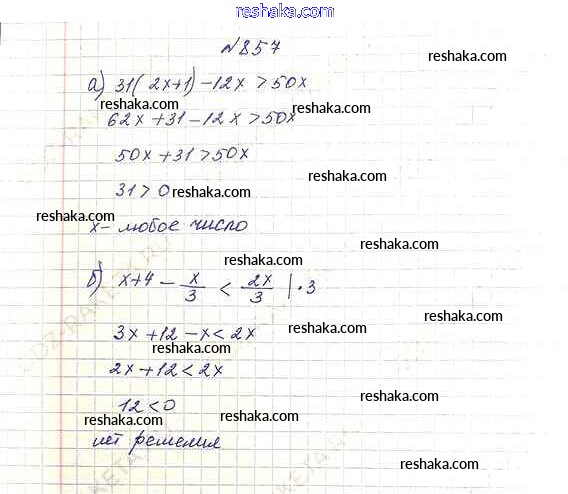 reshaka.com
№857
reshaka.com
а) 31(2x+1)-12x>50x
reshaka.com reshaka.com
62x+31-12x>50x
50x+31>50x
reshaka.com
31>0 reshaka.com
reshaka.com
x- любое число
reshaka.com
б) x+4 - x/3 < 2x/3 |·3
3x+12-x<2x reshaka.com
reshaka.com
2x+12<2x reshaka.com
12<0
reshaka.com reshaka.com reshaka.com
нет решения
reshaka.com